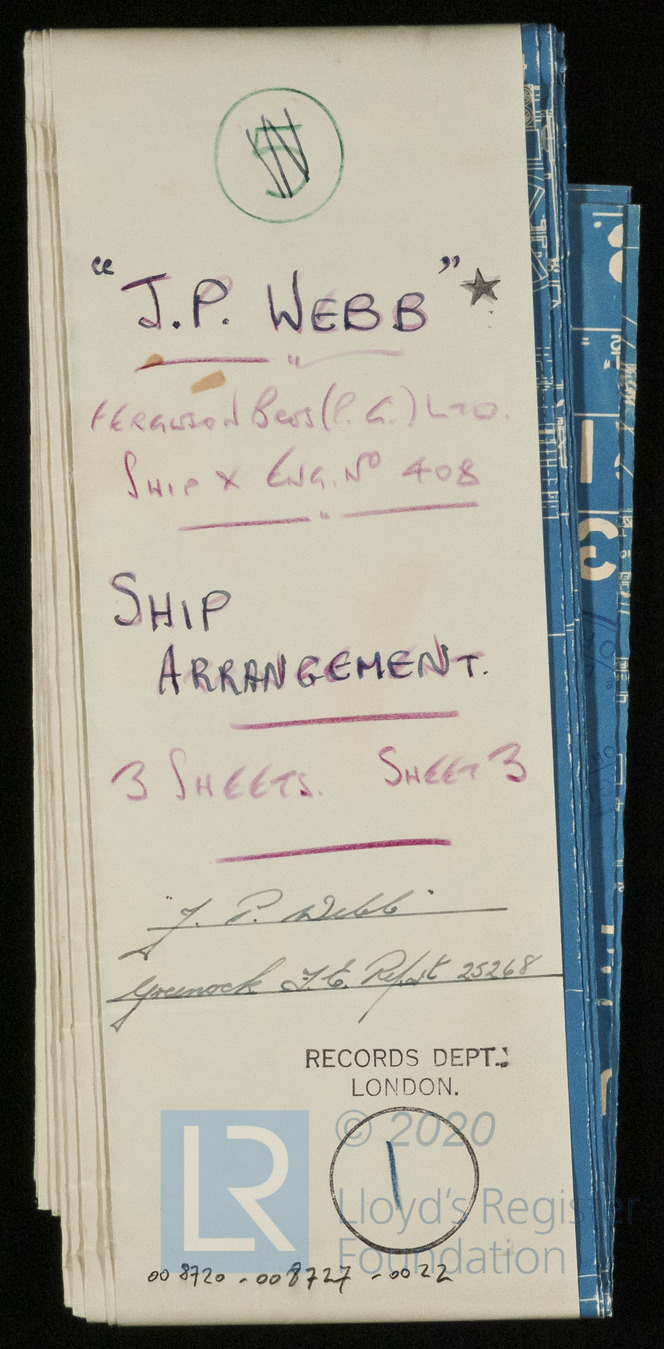 "J.P. WEBB"
FERGUSON BROS (P.G.) LTD.
SHIP & ENG. No 408
SHIP
ARRANGEMENT.
3 SHEETS. SHEET 3
"J. P. Webb"
Greenock F.E. Rept 25268
RECORDS DEPT.
LONDON.
1
LR
© 2020
Lloyd's Register
Foundation
008720 - 008727 - 0022